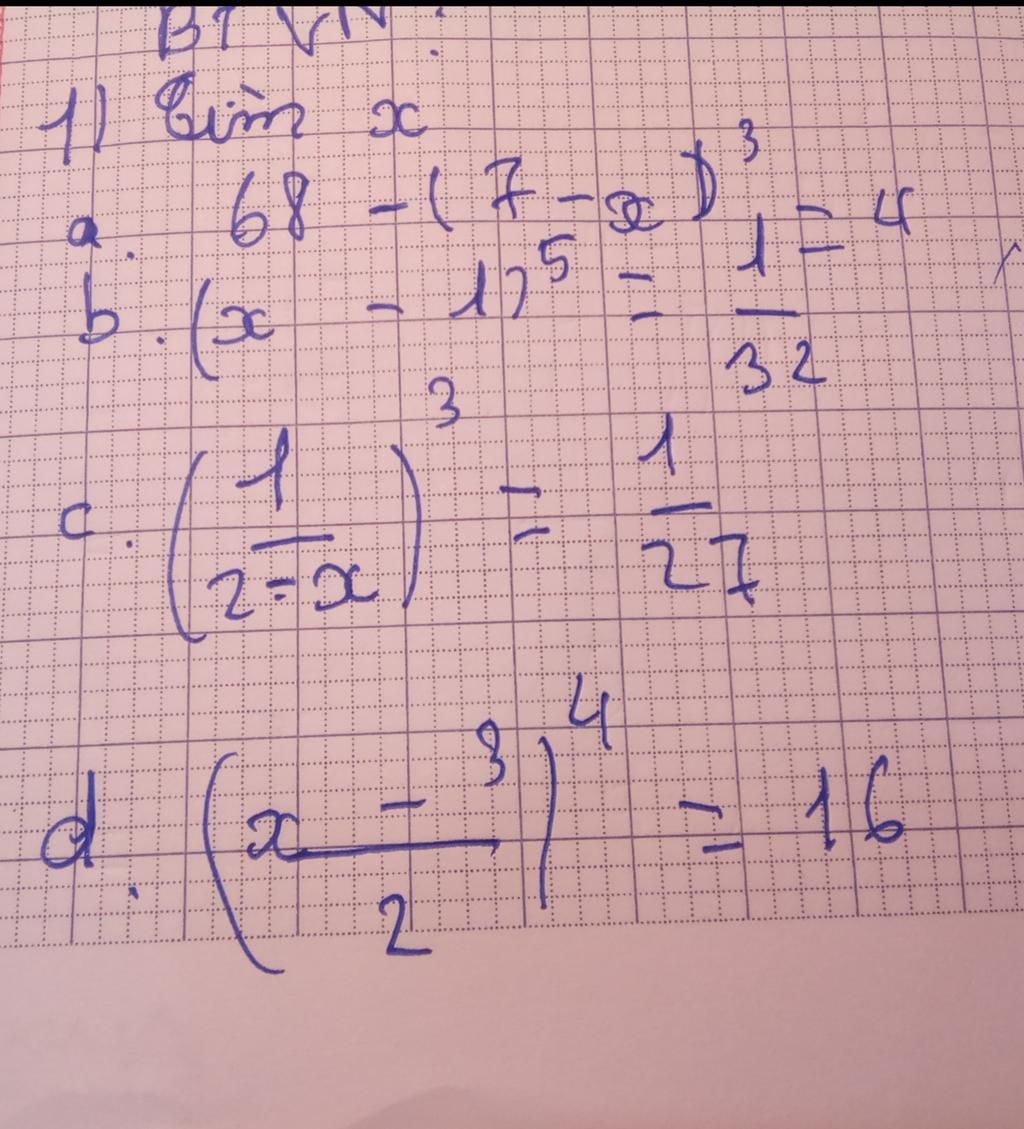 BTVN:
1) Tìm x
a. 68 - (7 - x)³ = 4
b. (x - 1)⁵ = 1/32
c. (1/(2-x))³ = 1/27
d. ((x - 3)/2)⁴ = 16